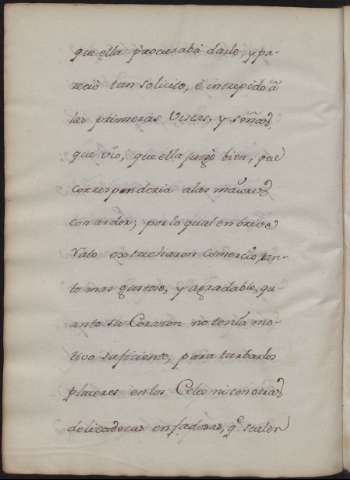 que ella procuraba darle, y pa-
recio tan solicito, è intrepido â
las primeras Vistas, y señas,
que vio, que ella juzgo bien, que
corresponderia a las mayores
con ardor; por lo qual en breve
Rato estrecharon comercio, tan-
to mas gustoso, y agradable, qu-
anto su Corazon no tenia mo-
tivo suficiente, para turbar los
placeres en los Celos ni con otras
delicadezas enfadosas, q.e suelen